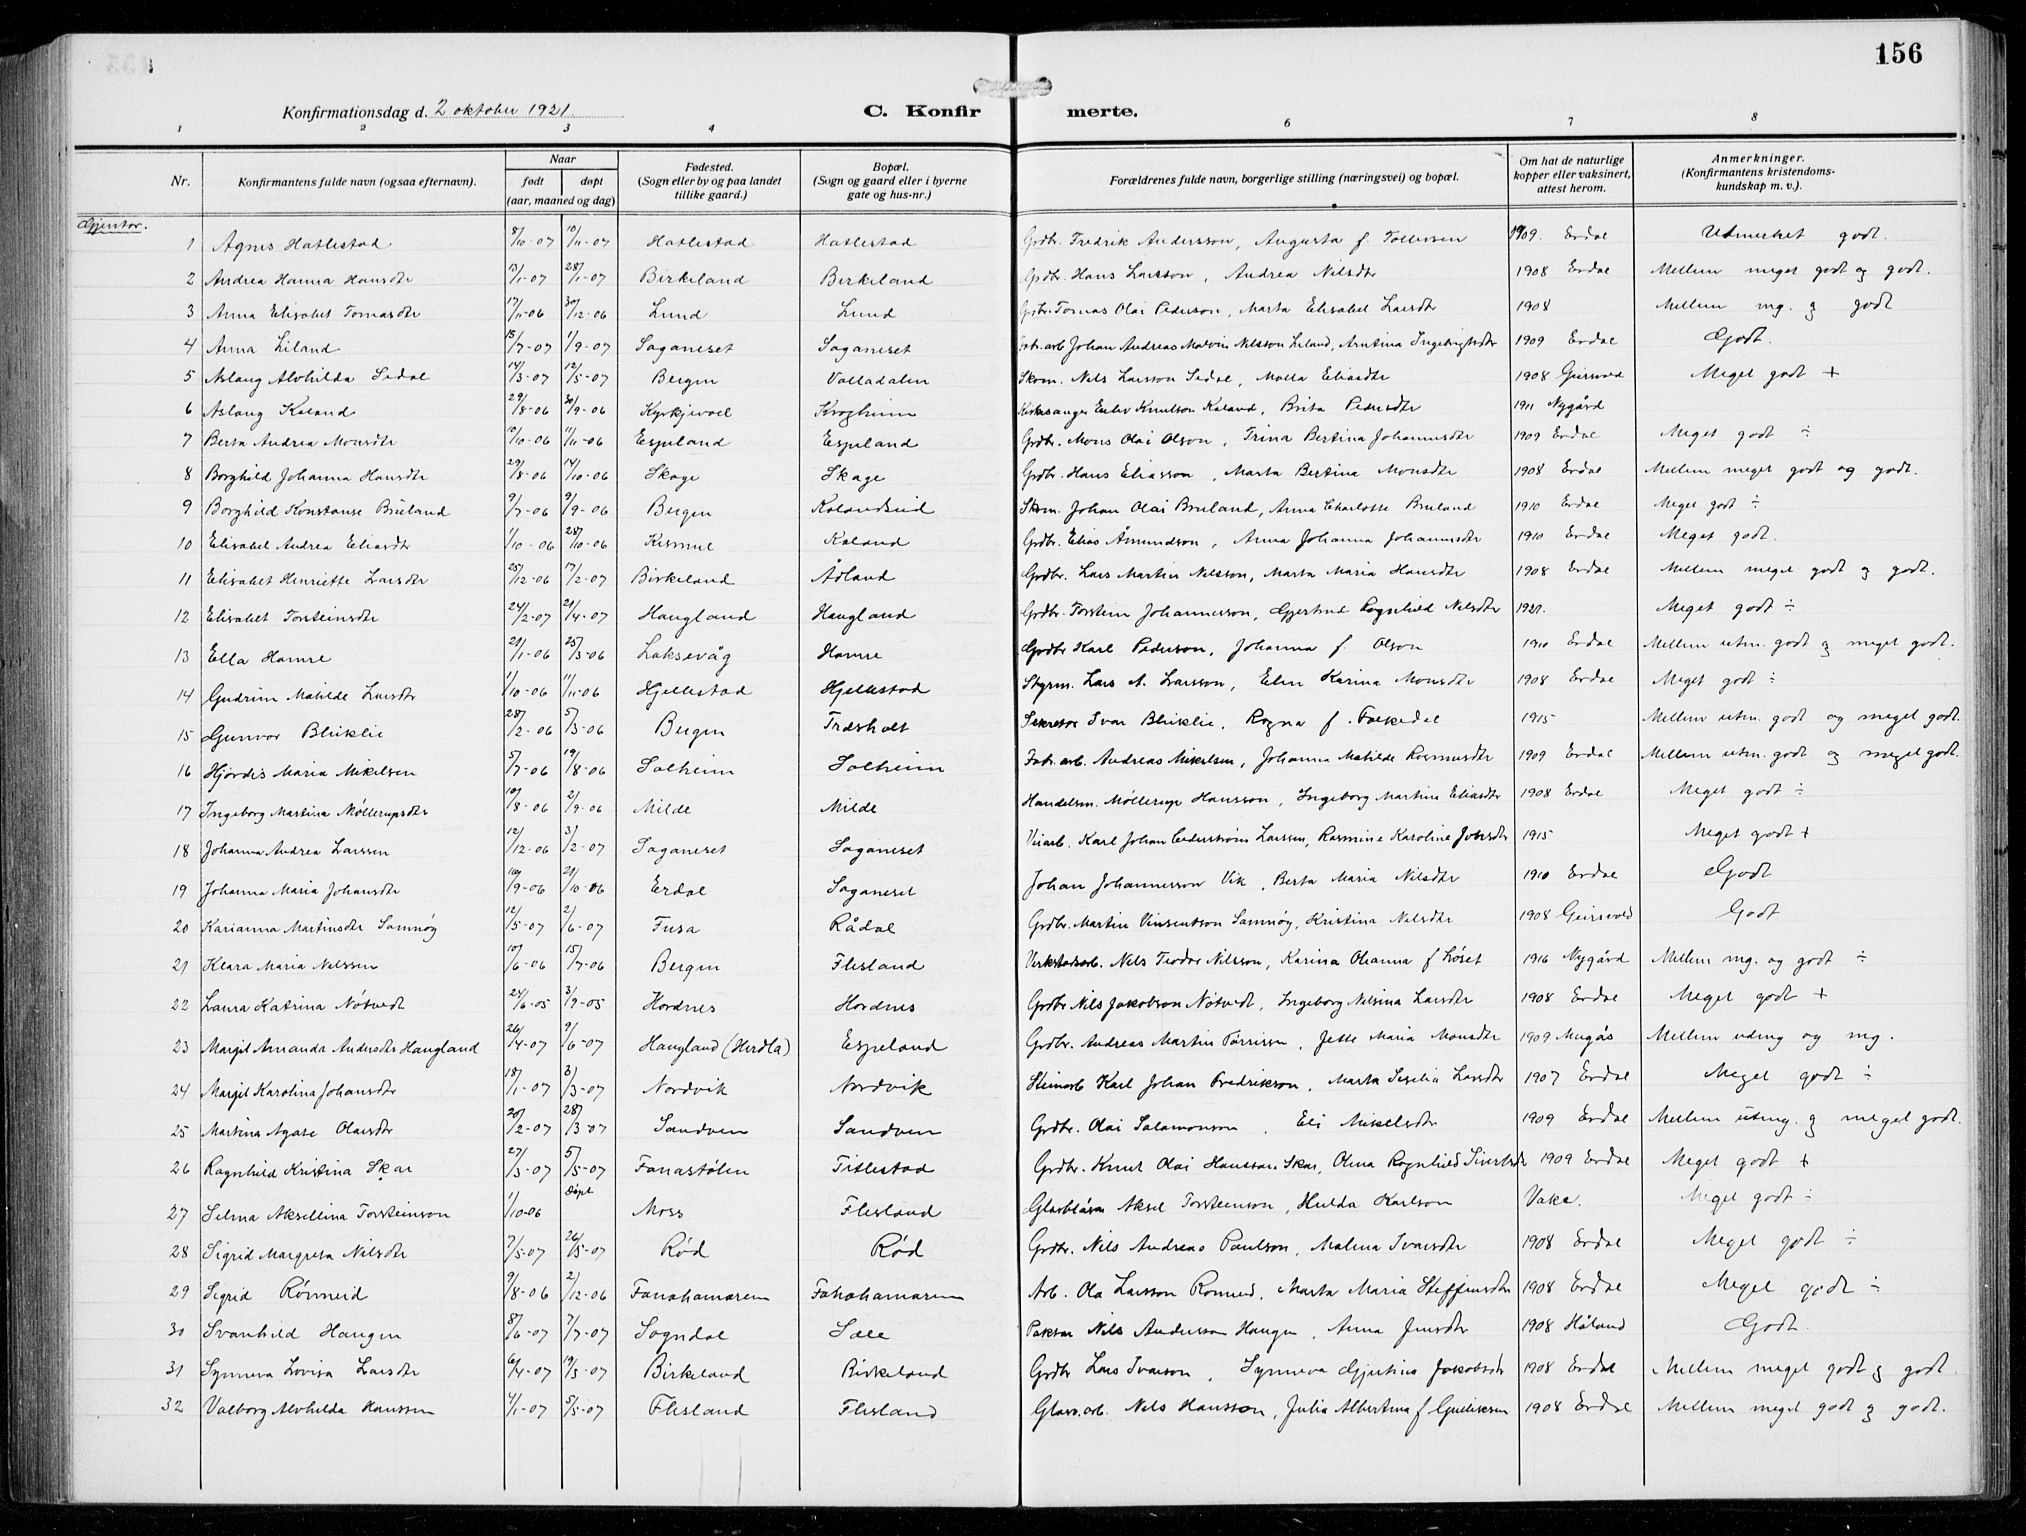 156
Konfirmationsdag d. 2 oktober 1921
C. Konfirmerte.
1 2 3 4 6 7 8
Nr. Konfirmantens fulde navn (ogsaa efternavn). Naar født døpt (aar, maaned og dag) Fødested. (Sogn eller by og paa landet tillike gaard.) Bopæl. (Sogn og gaard eller i byerne gate og hus-nr.) Forældrenes fulde navn, borgerlige stilling (næringsvei) og bopæl. Om hat de naturlige kopper eller vaksinert, attest herom. Anmerkninger. (Konfirmantens kristendomskundskap m. v.).
Gjentor.
1 Agnes Hatlestad 8/10-07 10/11-07 Hatlestad Hatlestad Grdbr. Fredrik Andersson, Augusta f. Tollevsen 1909. Erdal Udmerket godt.
2 Andrea Hanna Hansdtr 13/1-07 28/1-07 Birkeland Birkeland Grdbr. Hans Larsson, Andrea Nilsdtr 1908 Erdal Mellem meget godt og godt.
3 Anna Elisabet Tomasdtr 17/11-06 30/12-06 Lund Lund Grbr. Tomas Olai Pederson, Marta Elisabet Larsdtr 1908 Mellem mg. g godt
4 Anna Liland 15/7-07 1/9-07 Saganeset Saganeset Fab.arb Johan Andreas Malvin Nilsson Liland, Antina Ingebrigtsdtr 1909 Erdal Godt.
5 Aslaug Alvhilda Sedal 14/3-07 12/5-07 Bergen Valladalen Skom. Nils Larsson Sedal, Malla Eliasdtr 1908 Geirsvold Meget godt +
6 Aslaug Kaland 29/8-06 30/9-06 Kyrkjevoll Krogheim Kirkesanger Enlev Knutson Kaland, Brita Pedersdtr 1911 Nygård
7 Berta Andrea Monsdtr 10/10-06 11/11-06 Espeland Espeland Grdbr. Mons Olai Olson, Trina Bertina Johannesdtr 1909 Erdal Meget godt ÷
8 Borghild Johanna Hansdtr 29/8-06 14/10-06 Skage Skage Grdbr. Hans Eliasson, Marta Bertina Monsdtr 1908 Erdal Mellem meget godt og godt.
9 Borghild Konstanse Bruland 9/7-06 9/9-06 Bergen Kalandseid Skom. Johan Olai Bruland, Anna Charlotte Bruland 1910 Erdal Meget godt ÷
10 Elisabet Andrea Eliasdtr 1/10-06 28/10-06 Kismul Kaland Grdbr. Elias Åmundson, Anna Johanna Johannesdtr 1910 Erdal Meget godt.
11 Elisabet Henriette Larsdtr 25/12-06 17/2-07 Birkeland Ådland Grdbr. Lars Martin Nilsson, Marta Maria Hansdtr 1908 Erdal Mellem meget godt g godt.
12 Elisabet Torsteinsdtr 24/2-07 21/4-07 Haugland Haugland Grdbr. Torstein Johannesson, Gjertrud Ragnhild Nilsdtr 1921. Meget godt ÷
13 Ella Hamre 21/1-06 25/3-06 Laksevåg Hamre Grdbr Karl Pederson, Johanna f. Olson 1910 Erdal Mellem utm. godt g meget godt.
14 Gudrun Matilde Larsdtr 1/10-06 11/11-06 Hjellestad Hjellestad Styrm. Lars A. Larsson, Elen Karina Monsdtr 1908 Erdal Meget godt ÷
15 Gunvor Bleiklie 28/2-06 5/3-06 Bergen Træsholt Sekretær Ivar Bleiklie, Ragna f. Falkedal 1915 Mellem utm. godt og meget godt.
16 Hjørdis Maria Mikelsen 5/7-06 19/8-06 Solheim Solheim Fab.arb. Andreas Mikelsen, Johanna Matilde Rasmusdtr 1909 Erdal Mellem utm. godt og meget godt.
17 Ingeborg Martina Møllerupsdtr 10/8-06 2/9-06 Milde Milde Handelsm. Møllerup Hansson, Ingeborg Martine Eliasdtr 1908 Erdal Meget godt ÷
18 Johanna Andrea Larssen 12/12-06 3/2-07 Saganeset Saganeset Veiarb. Karl Johan Cederstrøm Larssen, Rasmine Karoline Jonsdtr 1915 Meget godt +
19 Johanna Maria Johansdtr 16/9-06 21/10-06 Erdal Saganeset Johan Johannesson Vik, Berta Maria Nilsdtr 1910 Erdal Godt
20 Karianna Martinsdtr Samnøy 12/5-07 2/6-07 Fusa Rådal Grdbr. Martin Vinsentson Samnøy, Kristina Nilsdtr 1908 Geirsvold Godt
21 Klara Maria Nilssen 10/6-06 15/7-06 Bergen Flesland Verkstadsarb. Nils Teodor Nilsson, Karina Olianna f Løset 1916 Nygård Mellem mg. og godt ÷
22 Laura Katrina Nøtvedt 24/6-05 3/9-05 Hordnes Hordnes Grdbr Nils Jakobson Nøtvedt, Ingeborg Nilsina Larsdtr 1908 Erdal Meget godt +
23 Margit Amanda Andersdtr Haugland 26/4-07 9/6-07 Haugland (Herdla) Espeland Grdbr. Andreas Martin Tørrisson, Jette Maria Monsdtr 1909 Mugås Mellem udmg og mg.
24 Margit Karolina Johansdtr 18/1-07 3/3-07 Nordvik Nordvik Steinarb Karl Johan Fredrikson, Marta Seselia Larsdtr 1907 Erdal Meget godt ÷
25 Martina Agate Olaisdtr 20/2-07 28/3-07 Sandven Sandven Grdbr. Olai Salamonson, Eli Mikelsdtr 1909 Erdal Mellem utmg. g meget godt.
26 Ragnhild Kristina Skar 27/3-07 5/5-07 Fanastølen Titlestad Grdbr. Knut Olai Hansson Skar, Olina Ragnhild Sivertsdtr 1909 Erdal Meget godt +
27 Selma Aksellina Torsteinson 1/10-06 døpt Moss Flesland Glasblåser Aksel Torsteinson, Hulda Karlson Vaks. Meget godt ÷
28 Sigrid Margreta Nilsdtr 7/5-07 26/5-07 Rød Rød Grdbr. Nils Andreas Paulson, Malena Ivarsdtr 1908 Erdal Meget godt ÷
29 Sigrid Rønneid 9/8-06 2/12-06 Fanahamaren Fanahamaren Arb. Ola Larsson Rønneid, Marta Maria Steffensdtr 1908 Erdal Meget godt ÷
30 Svanhild Haugen 8/6-07 7/7-07 Sogndal Sæle Nils Anderson Haugen, Anna Jensdtr 1908 Håland Godt.
31 Synneva Lovisa Larsdtr 6/4-07 19/5-07 Birkeland Birkeland Grdbr Lars Ivarson, Synneva Gjertina Jakobsdtr 1908 Erdal Mellem meget godt g godt
32 Valborg Alvhilda Hanssen 4/1-07 5/5-07 Flesland Flesland Glass.arb. Nils Hansson, Julia Albertina f Gulliksen 1908 Erdal Mellem meget godt g godt.